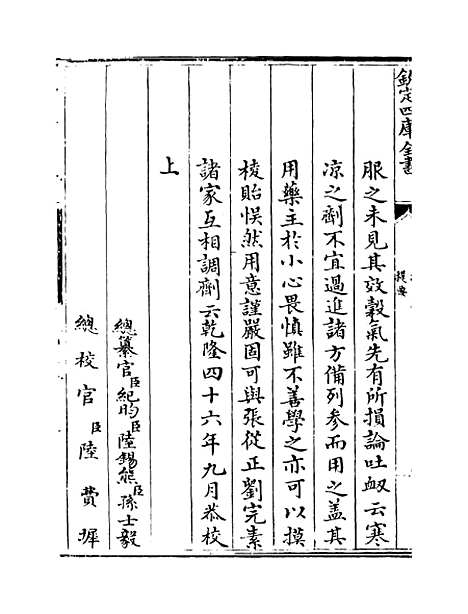 欽定四庫全書
提要
服之未見其效穀氣先有所損論吐衂云寒
凉之劑不宜過進諸方備列參而用之蓋其
用藥主於小心畏慎雖不善學之亦可以摸
稜貽悮然用意謹嚴固可與張從正劉完素
諸家互相調劑云乾隆四十六年九月恭校
上
總纂官臣紀昀臣陸錫熊臣孫士毅
總校官臣陸費墀